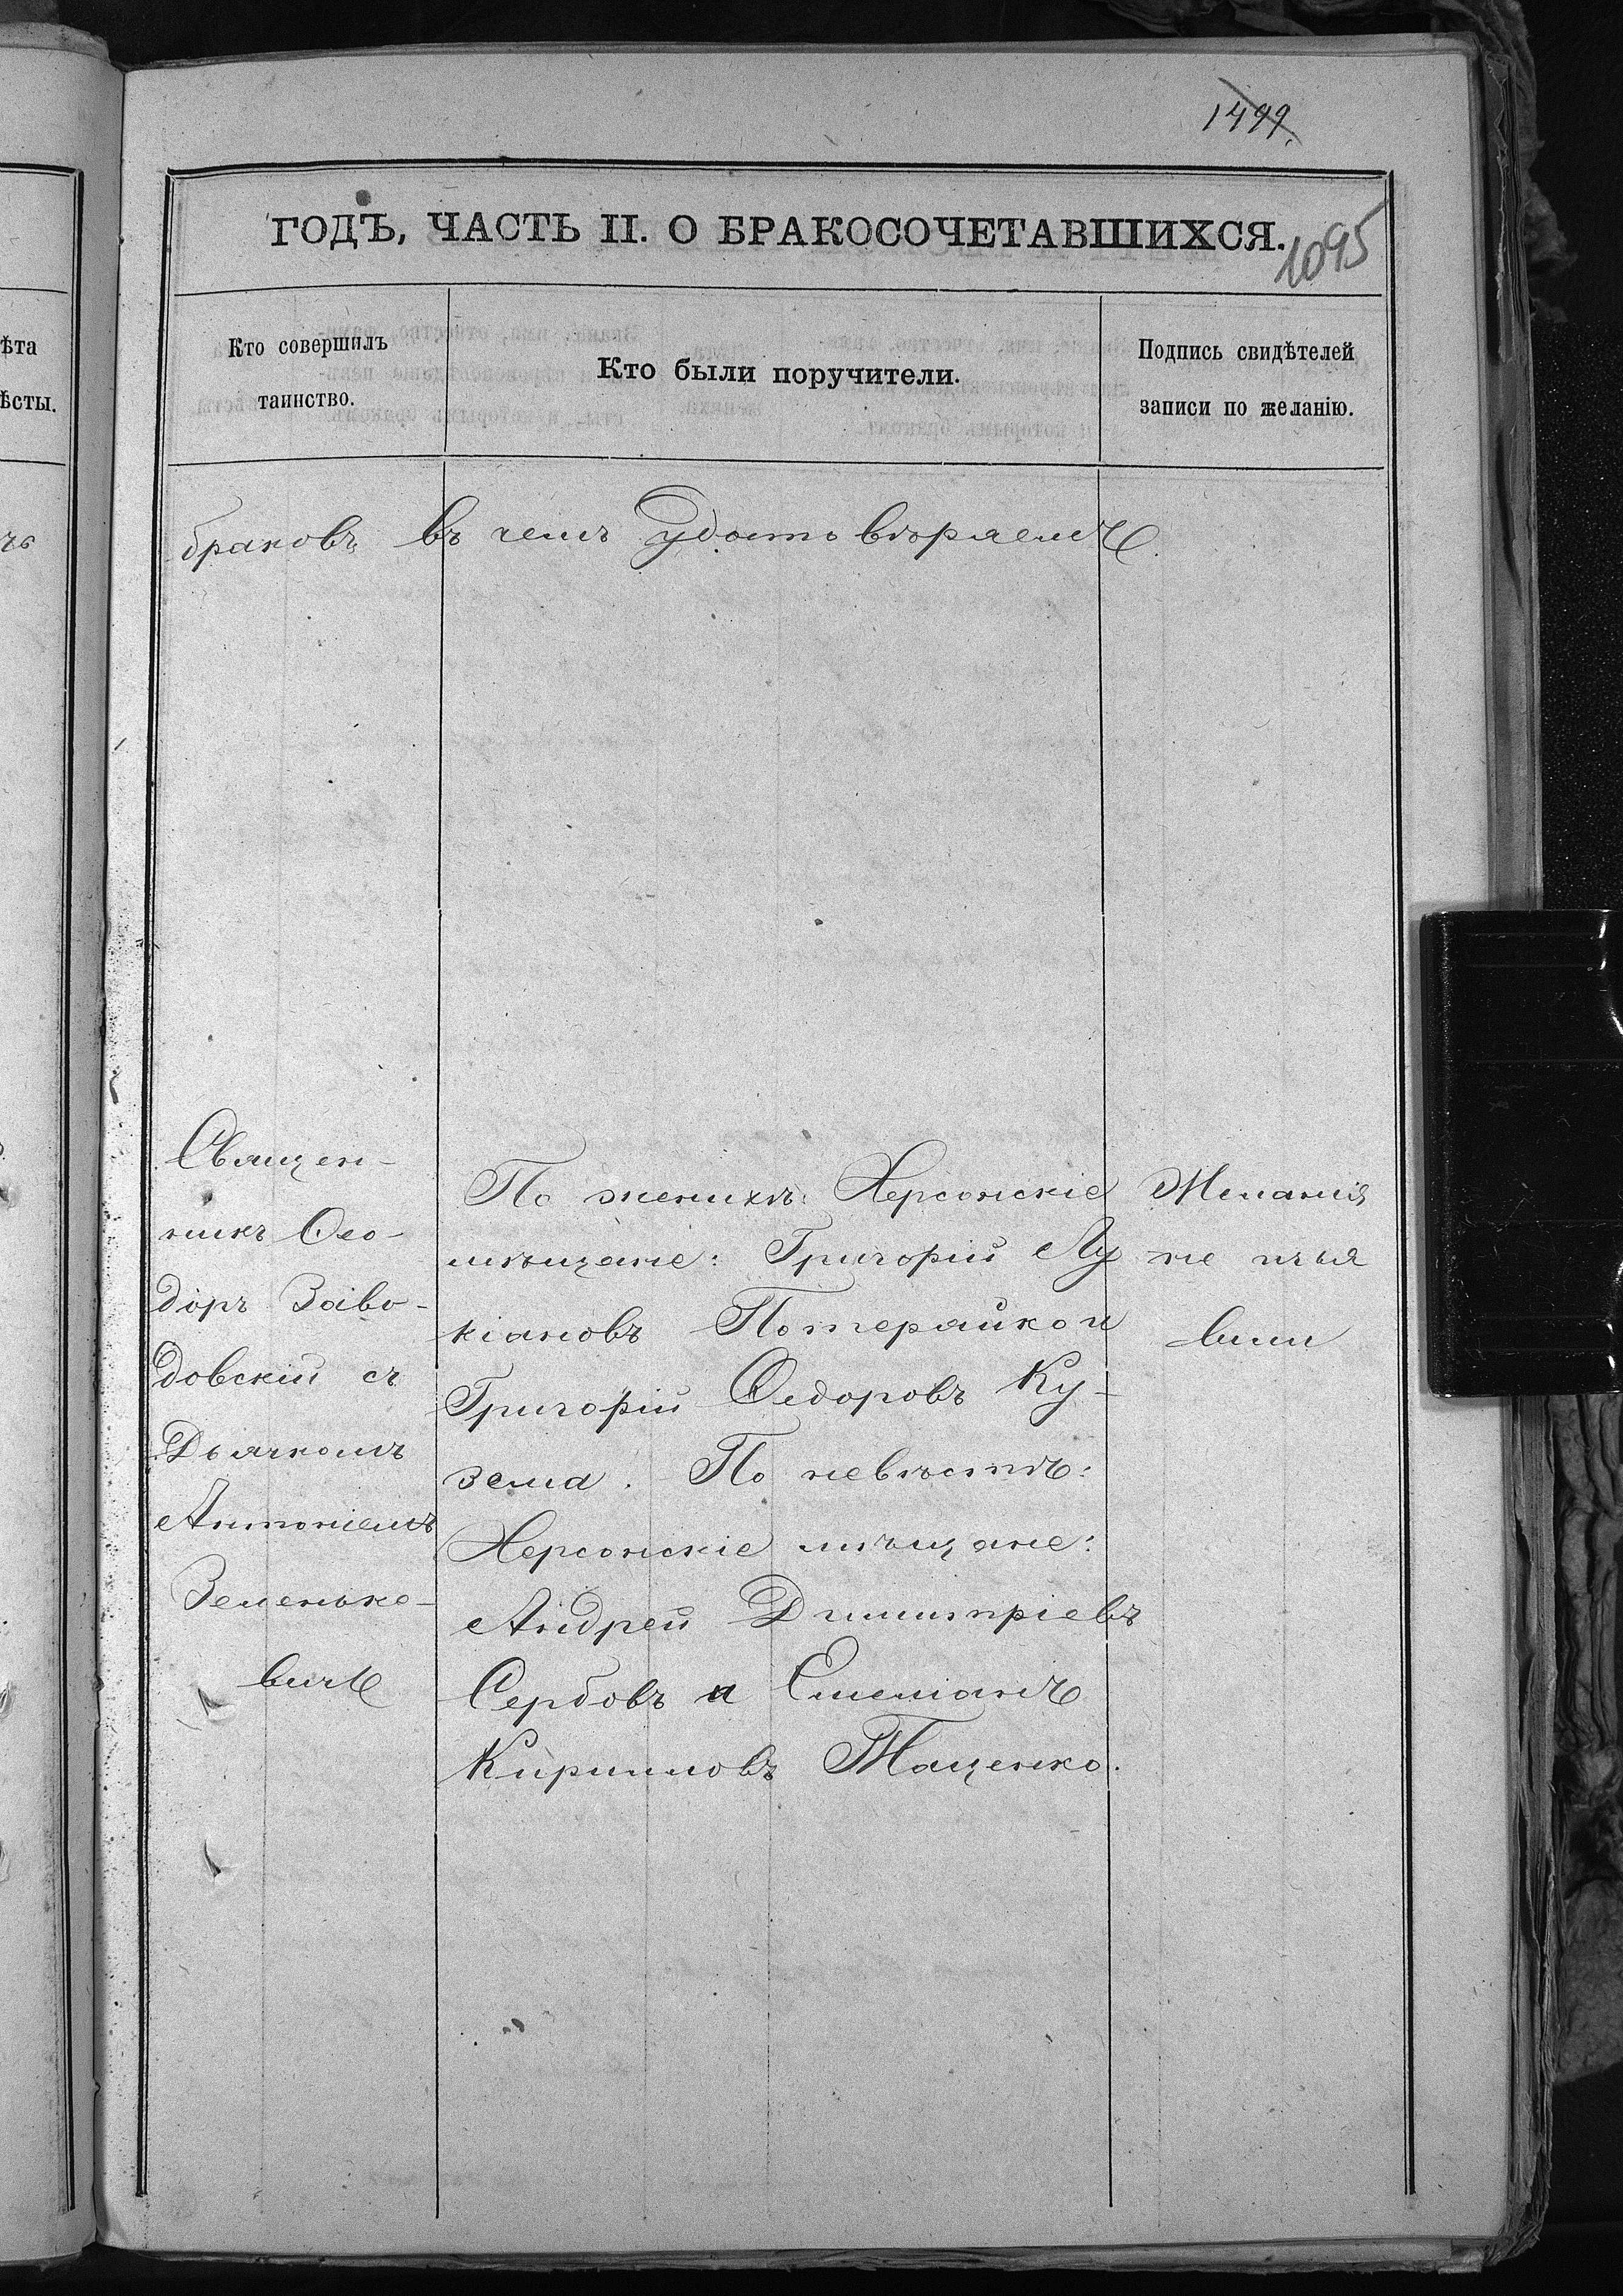 1499.
ГОДЪ, ЧАСТЬ II. О БРАКОСОЧЕТАВШИХСЯ.
1095
ѣта
ѣсты.
Кто совершилъ
таинство.
Кто были поручители.
Подпись свидѣтелей
записи по желанію.
браковъ въ чемъ Удостовѣряемъ.
Священ-
никъ Ѳео-
доръ Заво-
довскій съ
Дьячкомъ
Антоніемъ
Зеленке-
вичъ
По женихѣ: Херсонскіе
мѣщане: Григорій Лу
кіановъ Потерайко и
Григорій Ѳедоровъ Ку-
зема. По невѣстѣ:
Херсонскіе мѣщане:
Андрей Димитріевъ
Сербовъ и Емеліанъ
Кирилловъ Таценко.
Желанія
не изъя
вили